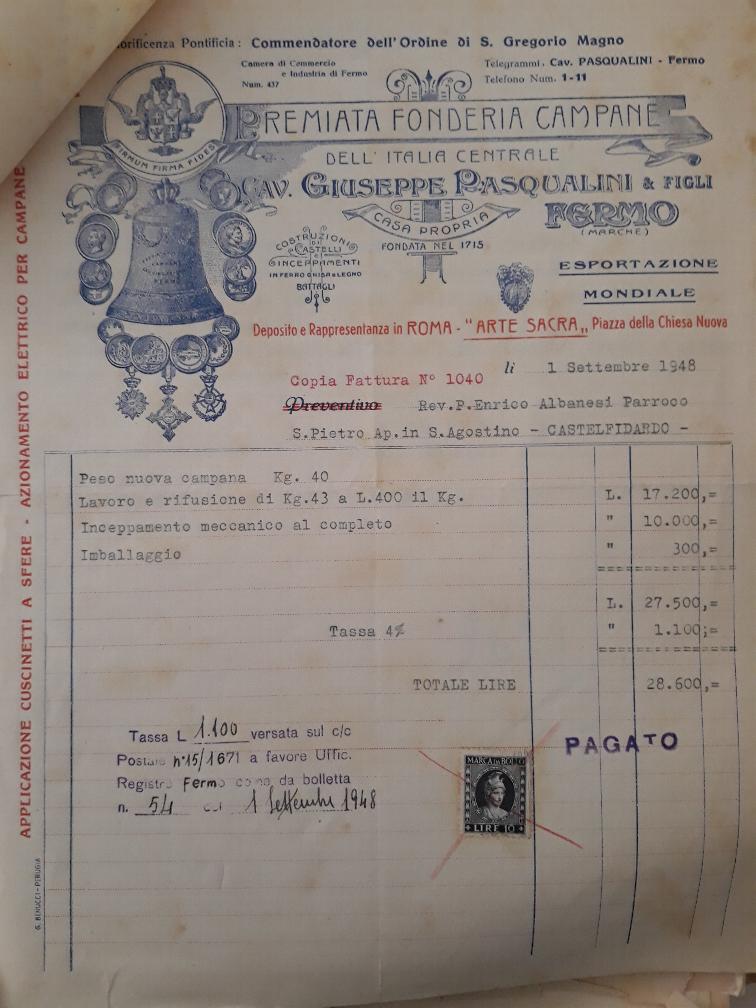 orificenza Pontificia: Commendatore dell'Ordine di S. Gregorio Magno
Camera di Commercio
e Industria di Fermo
Num. 437
Telegrammi. Cav. PASQUALINI - Fermo
Telefono Num. 1-11
PREMIATA FONDERIA CAMPANE
DELL'ITALIA CENTRALE
CAV. GIUSEPPE PASQUALINI & FIGLI
FIRMUM FIRMA FIDES
CASA PROPRIA
FONDATA NEL 1715
FERMO
(MARCHE)
COSTRUZIONI
DI
CASTELLI
E
INCEPPAMENTI
IN FERRO GHISA E LEGNO
BATTAGLI
ESPORTAZIONE
MONDIALE
Deposito e Rappresentanza in ROMA - "ARTE SACRA„ Piazza della Chiesa Nuova
lì 1 Settembre 1948
Copia Fattura N° 1040
Preventivo Rev.P.Enrico Albanesi Parroco
S.Pietro Ap.in S.Agostino - CASTELFIDARDO -
Peso nuova campana Kg. 40
Lavoro e rifusione di Kg.43 a L.400 il Kg. L. 17.200,=
Inceppamento meccanico al completo " 10.000,=
Imballaggio " 300,=
L. 27.500,=
Tassa 4% " 1.100;=
TOTALE LIRE 28.600,=
Tassa L 1.100 versata sul c/c
Postale n°15/1671 a favore Uffic.
Registro Fermo come da bolletta
n. 54 del 1 Settembre 1948
PAGATO
MARCA DA BOLLO
LIRE 10
APPLICAZIONE CUSCINETTI A SFERE - AZIONAMENTO ELETTRICO PER CAMPANE
G. BENUCCI - PERUGIA